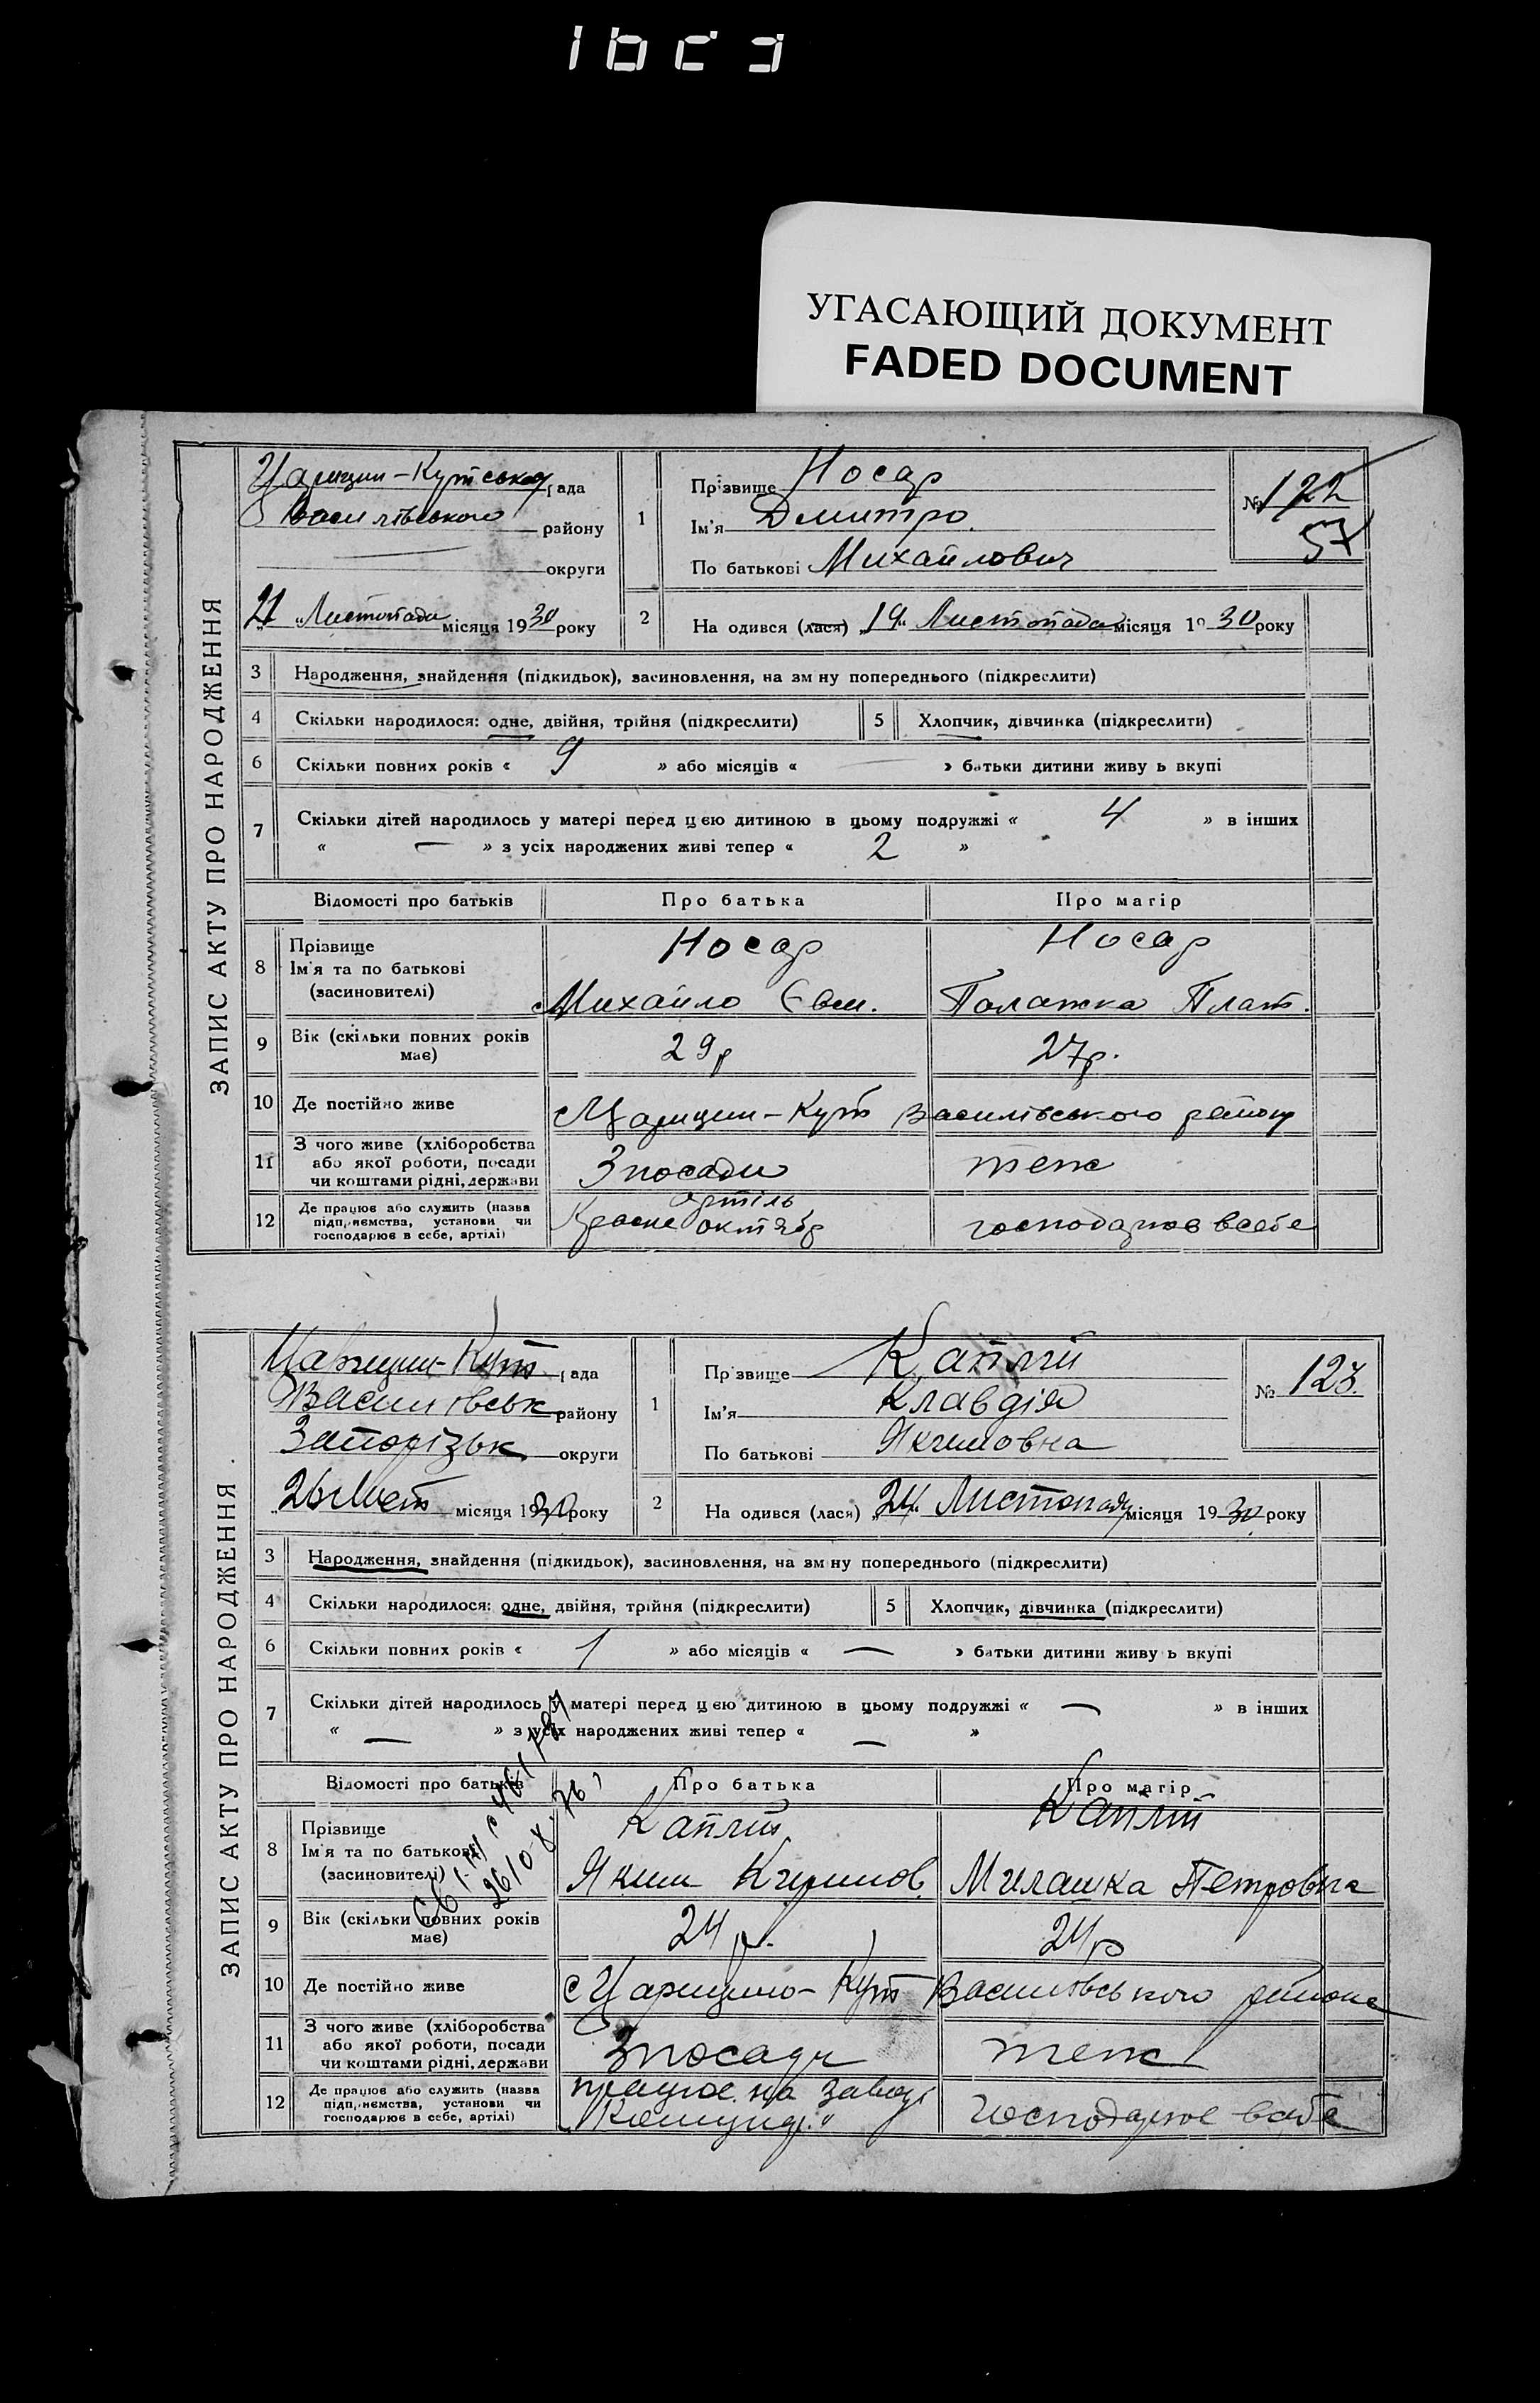 УГАСАЮЩИЙ ДОКУМЕНТ
FADED DOCUMENT
ЗАПИС АКТУ ПРО НАРОДЖЕННЯ
Царицин-Кутська рада
Василівського району
округи
21 Листопада місяця 1930 року
1
Прізвище Носар
Ім'я Дмитро
По батькові Михайлович
№ 122
57
2
На одився (лася) „19“ Листопада місяця 1930 року
3 Народження, знайдення (підкидьок), засиновлення, на зм ну попереднього (підкреслити)
4 Скільки народилося: одне, двійня, трійня (підкреслити)
5 Хлопчик, дівчинка (підкреслити)
6 Скільки повних років « 9 » або місяців « — » батьки дитини живу ь вкупі
7 Скільки дітей народилось у матері перед цею дитиною в цьому подружжі « 4 » в інших
« — » з усіх народжених живі тепер « 2 »
Відомості про батьків Про батька Про матір
8 Прізвище
Ім'я та по батькові
(засиновителі)
Носар Носар
Михайло Євм. Палажка Плат.
9 Вік (скільки повних років має) 29 р 27 р.
10 Де постійно живе с Царицин-Кут Василівського району
11 З чого живе (хліборобства
або якої роботи, посади
чи коштами рідні, держави
З посади теж
12 Де працює або служить (назва
підприємства, установи чи
господарює в себе, артілі)
артіль
Красне октябр господарює в себе
ЗАПИС АКТУ ПРО НАРОДЖЕННЯ
Царицин-Кут рада
Василівськ району
Запорізьк округи
„26 Лист місяця 1930 року
1
Прізвище Каплій
Ім'я Клавдія
По батькові Якимовна
№ 123.
2
На одився (лася) „24“ Листопада місяця 1930 року
3 Народження, знайдення (підкидьок), засиновлення, на зм ну попереднього (підкреслити)
4 Скільки народилося: одне, двійня, трійня (підкреслити)
5 Хлопчик, дівчинка (підкреслити)
6 Скільки повних років « 1 » або місяців « — » батьки дитини живу ь вкупі
7 Скільки дітей народилось у матері перед цею дитиною в цьому подружжі « — » в інших
« — » з усіх народжених живі тепер « — »
Відомості про батьків Про батька Про матір
8 Прізвище
Ім'я та по батькові
(засиновителі)
Каплій Каплій
Яким Милашка Петровна
9 Вік (скільки повних років має) 24 р. 24 р
10 Де постійно живе с Царицино-Кут Василівського району
11 З чого живе (хліборобства
або якої роботи, посади
чи коштами рідні, держави
З посади теж
12 Де працює або служить (назва
підприємства, установи чи
господарює в себе, артілі)
працює на заводі
господарює в себе